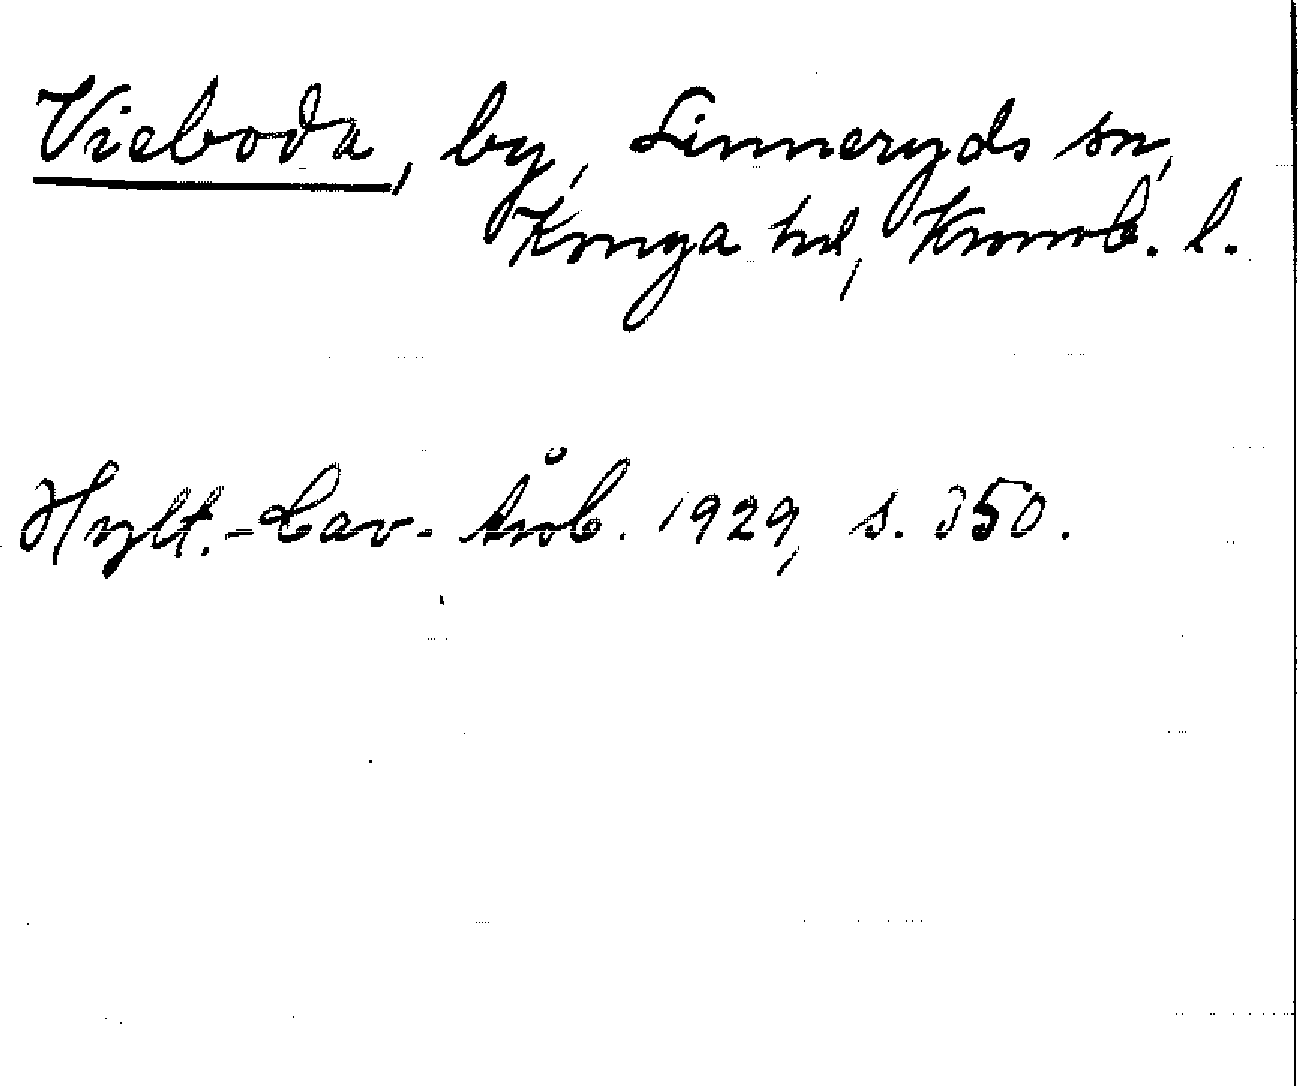 Vieboda, by, Linneryds sn,
Konga hd, Kronob. l.
Hylt.-Cav. Årsb. 1929, s. 350.